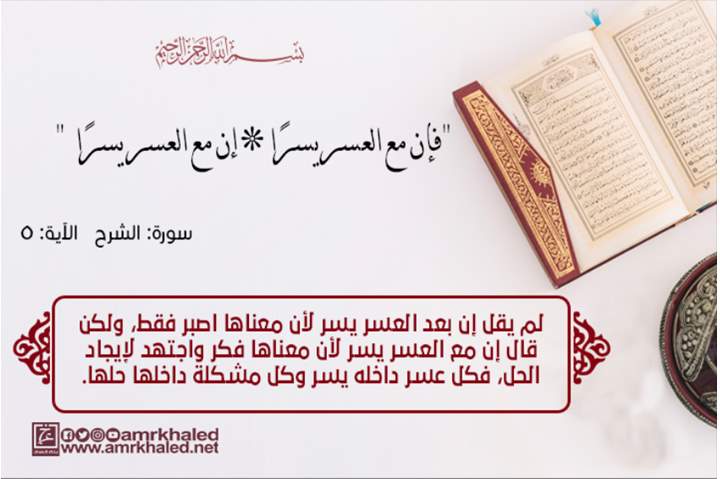 بسم الله الرحمن الرحيم
"فإن مع العسر يسرًا * إن مع العسر يسرًا "
سورة: الشرح الآية: ٥
لم يقل إن بعد العسر يسر لأن معناها اصبر فقط، ولكن
قال إن مع العسر يسر لأن معناها فكر واجتهد لإيجاد
الحل، فكل عسر داخله يسر وكل مشكلة داخلها حلها.
amrkhaled
www.amrkhaled.net